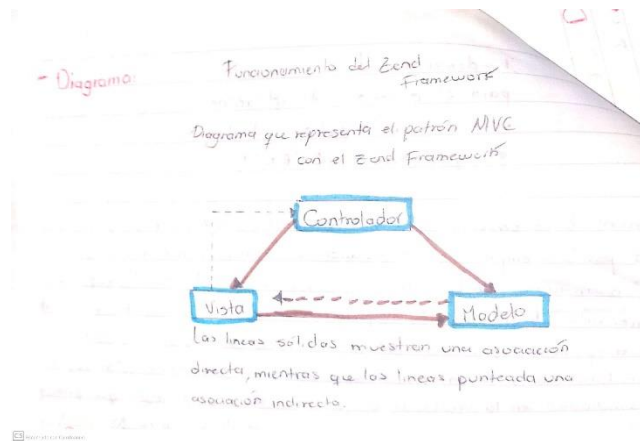 - Diagrama:
Funcionamiento del Zend
Framework
Diagrama que representa el patrón MVC
con el Zend Framework
Controlador
Vista
Modelo
Las lineas sólidas muestran una asociación
directa, mientras que las lineas punteada una
asociación indirecta.